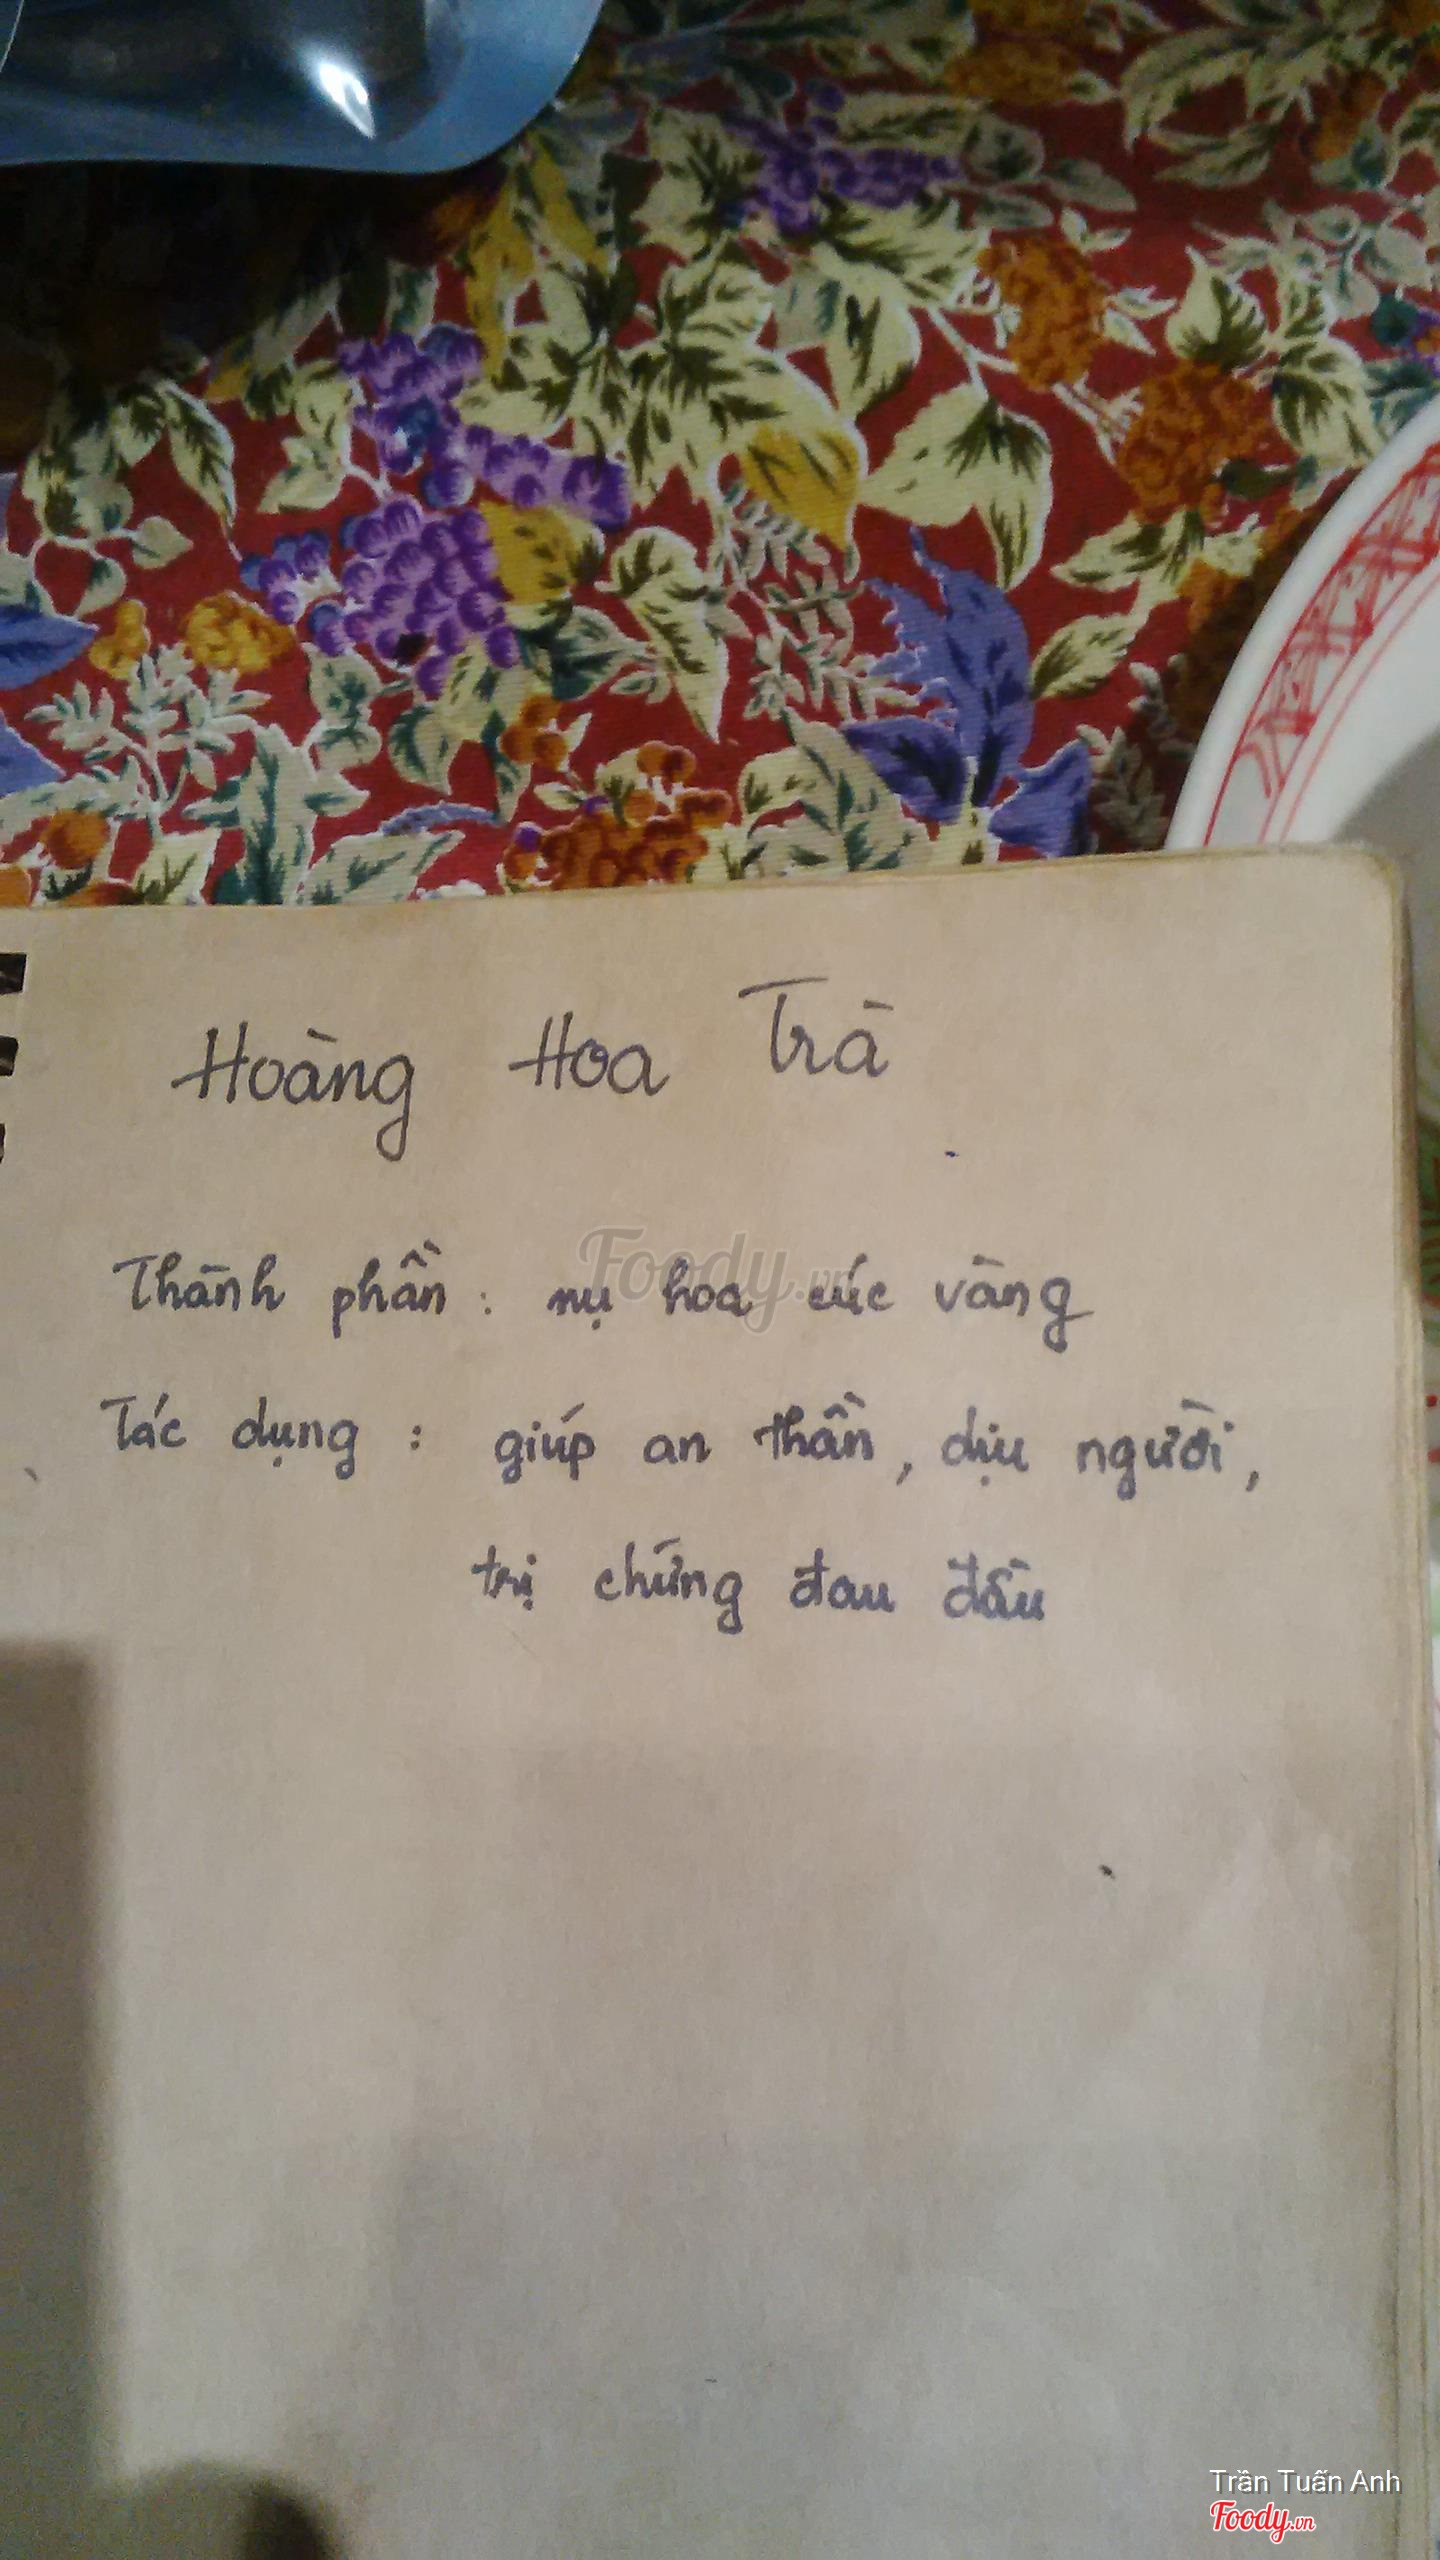 Hoàng Hoa Trà
Thành phần : nụ hoa cúc vàng
Tác dụng : giúp an thần, dịu người,
trị chứng đau đầu
Foody.vn
Trần Tuấn Anh
Foody.vn